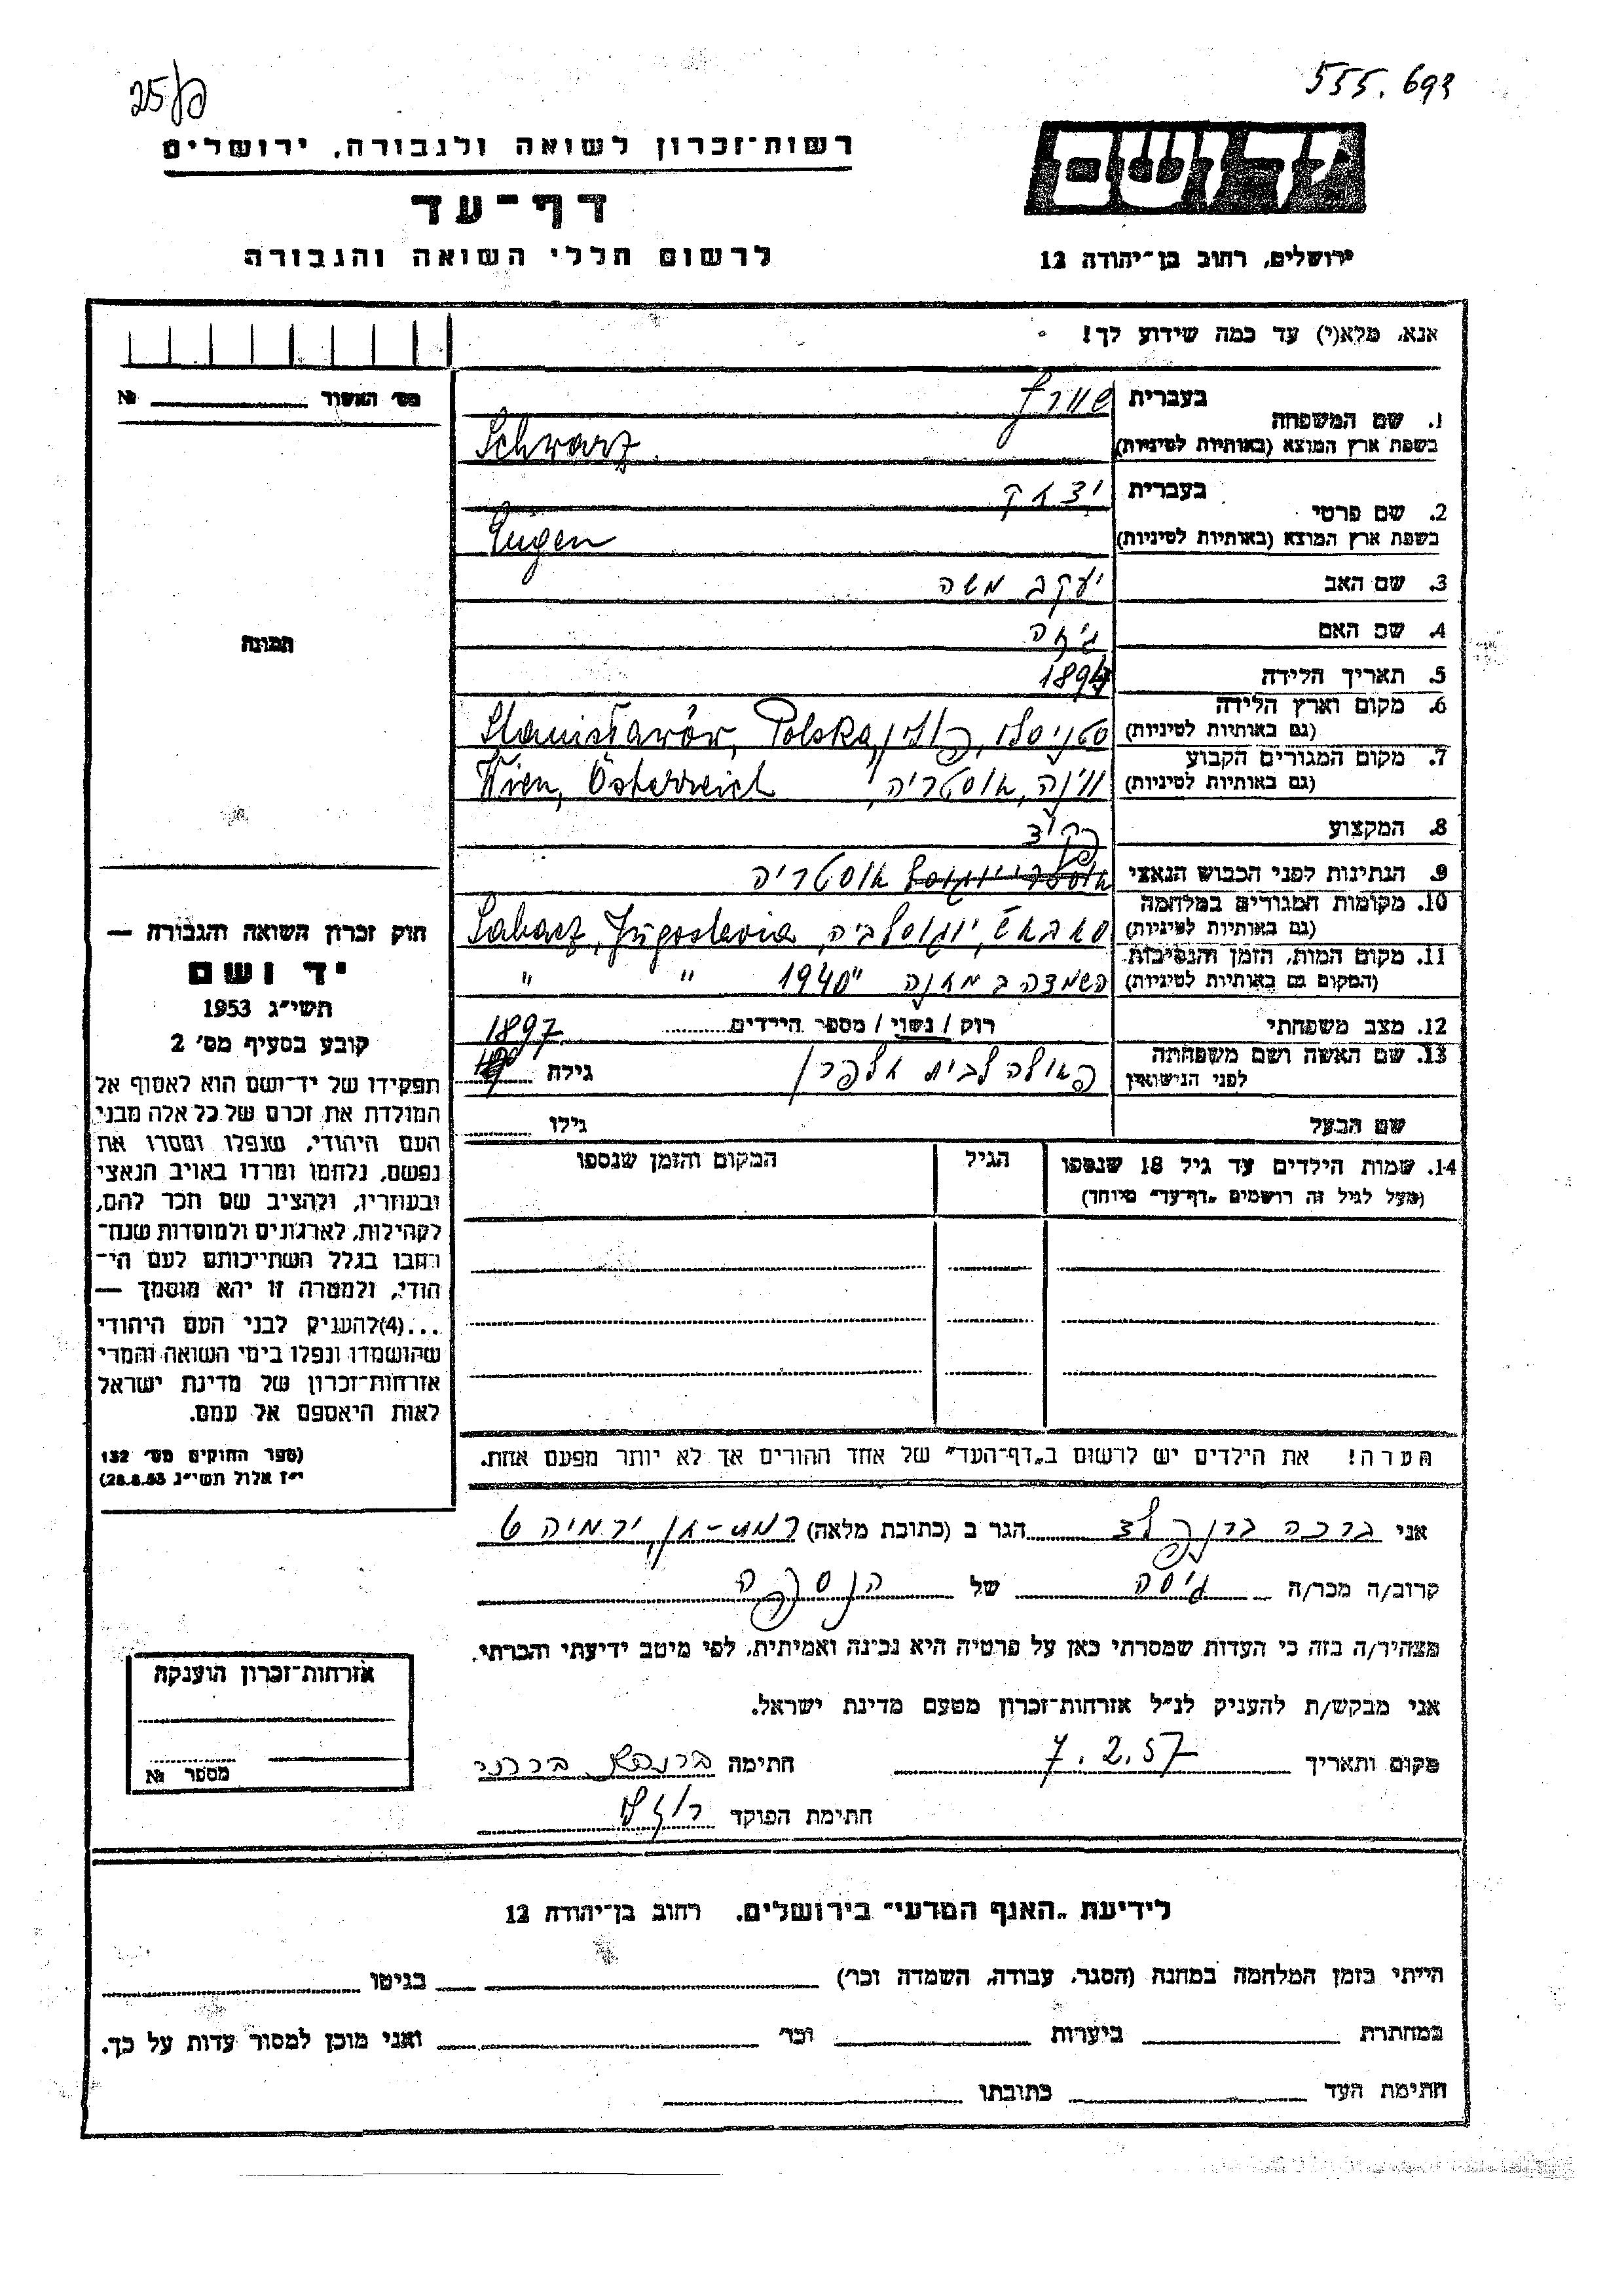 25/פ
555.693
רשות־זכרון לשואה ולגבורה, ירושלים
דף־עד
לרשום חללי השואה והגבורה
יד ושם
ירושלים, רחוב בן־יהודה 12
אנא, מלא(י) עד כמה שידוע לך!
מס׳ האשור № 
1. שם המשפחה
בעברית שוורץ
בשפת ארץ המוצא (באותיות לטיניות) Schwarz
2. שם פרטי
בעברית יצחק
בשפת ארץ המוצא (באותיות לטיניות) Eugen
3. שם האב יעקב משה
4. שם האם
5. תאריך הלידה
6. מקום וארץ הלידה (גם באותיות לטיניות) סטניסלו, פולין Stanisławów, Polska
7. מקום המגורים הקבוע (גם באותיות לטיניות) וינה, אוסטריה, Wien, Österreich
8. המקצוע פקיד
9. הנתינות לפני הכבוש הנאצי אוסטריה
10. מקומות המגורים במלחמה (גם באותיות לטיניות) סאבאטש, יוגוסלביה, Sabacz, Jugoslavia
11. מקום המות, הזמן והנסיבות (המקום גם באותיות לטיניות) השמדה במחנה 1940 " "
12. מצב משפחתי רוק / נשוי / מספר הילדים
13. שם האשה ושם משפחתה לפני הנישואין פאולה לבית אלפרן גילה 1897
שם הבעל גילו
14. שמות הילדים עד גיל 18 שנספו
(מעל לגיל זה רושמים „דף־עד״ מיוחד)
הגיל
המקום והזמן שנספו
תמונה
חוק זכרון השואה והגבורה —
יד ושם
תשי״ג 1953
קובע בסעיף מס׳ 2
תפקידו של יד־ושם הוא לאסוף אל
המולדת את זכרם של כל אלה מבני
העם היהודי, שנפלו ומסרו את
נפשם, נלחמו ומרדו באויב הנאצי
ובעוזריו, ולהציב שם וזכר להם,
לקהילות, לארגונים ולמוסדות שנח־
רבו בגלל השתייכותם לעם הי־
הודי, ולמטרה זו יהא מוסמך —
...(4)להעניק לבני העם היהודי
שהושמדו ונפלו בימי השואה והמרי
אזרחות־זכרון של מדינת ישראל
לאות היאספם אל עמם.
(ספר החוקים מס׳ 132
י״ז אלול תשי״ג 28.8.53)
הערה! את הילדים יש לרשום ב„דף־העד״ של אחד ההורים אך לא יותר מפעם אחת.
אני ברכה הגר ב (כתובת מלאה) רמת-גן, ירמיהו 9
קרוב/ה מכר/ה גיסה של הנספה
מצהיר/ה בזה כי העדות שמסרתי כאן על פרטיה היא נכונה ואמיתית, לפי מיטב ידיעתי והכרתי.
אני מבקש/ת להעניק לנ״ל אזרחות־זכרון מטעם מדינת ישראל.
מקום ותאריך 7.2.57 חתימה
חתימת הפוקד
אזרחות־זכרון הוענקה
מספר №
לידיעת „האגף המדעי״ בירושלים, רחוב בן־יהודה 12
הייתי בזמן המלחמה במחנה (הסגר, עבודה, השמדה וכו׳) בגיטו
במחתרת ביערות וכו׳ ואני מוכן למסור עדות על כך.
חתימת העד כתובתו